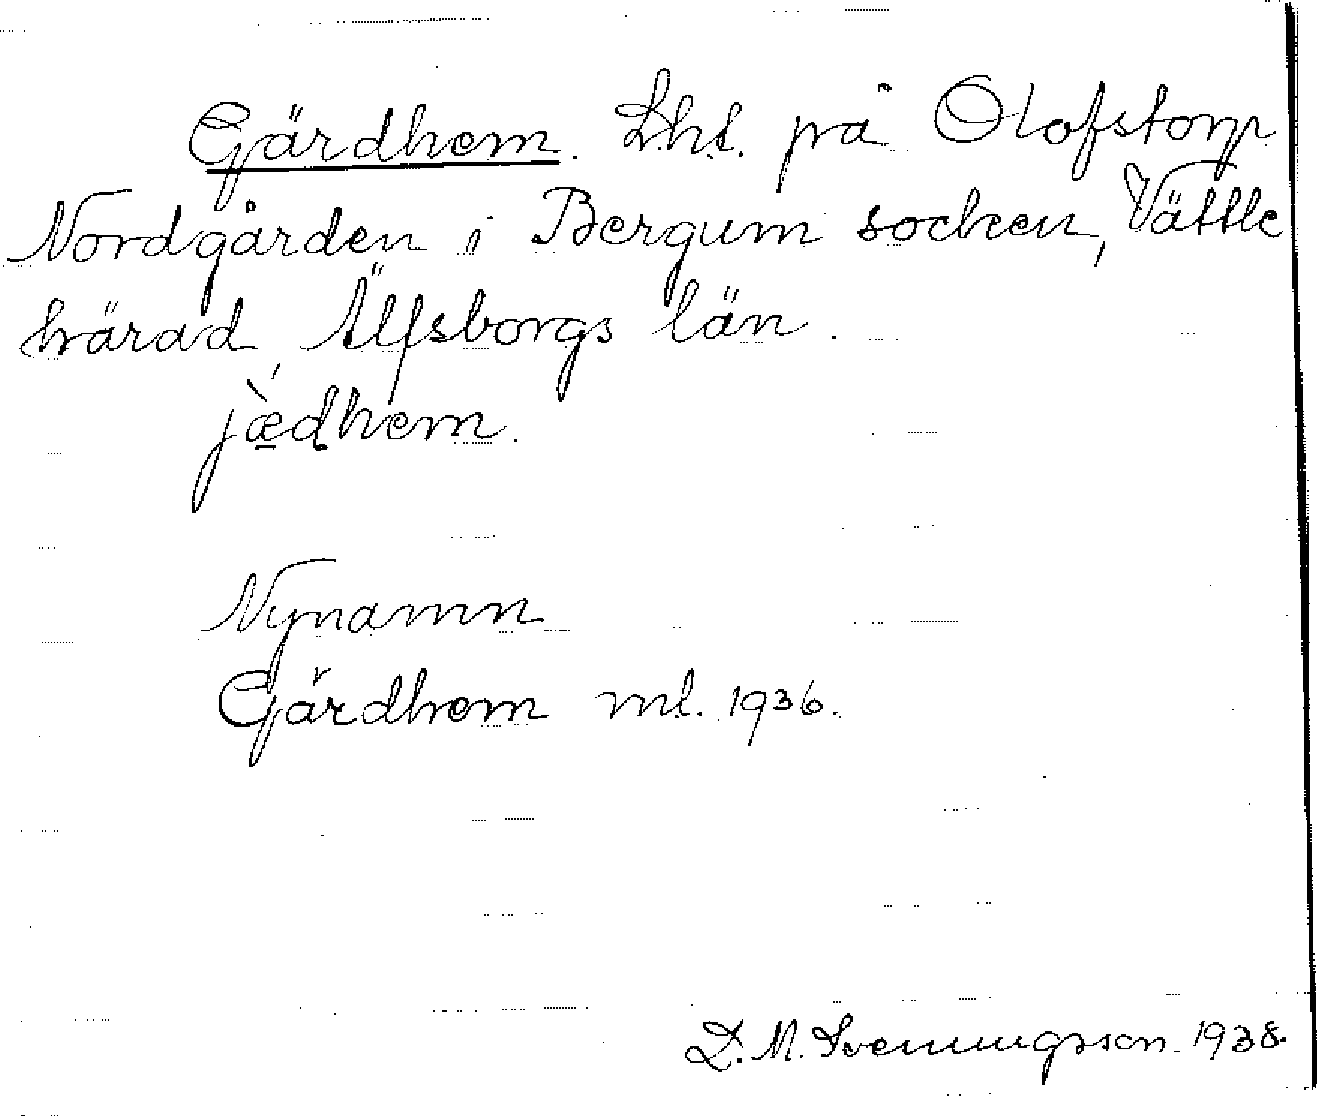 Gärdhem. Lht. på Olofstorp
Nordgården i Bergum socken, Vättle
härad, Älfsborgs län.
jæ̀dhem.
Nynamn
Gärdhem ml. 1936.
D. M. Svenningsson. 1938.